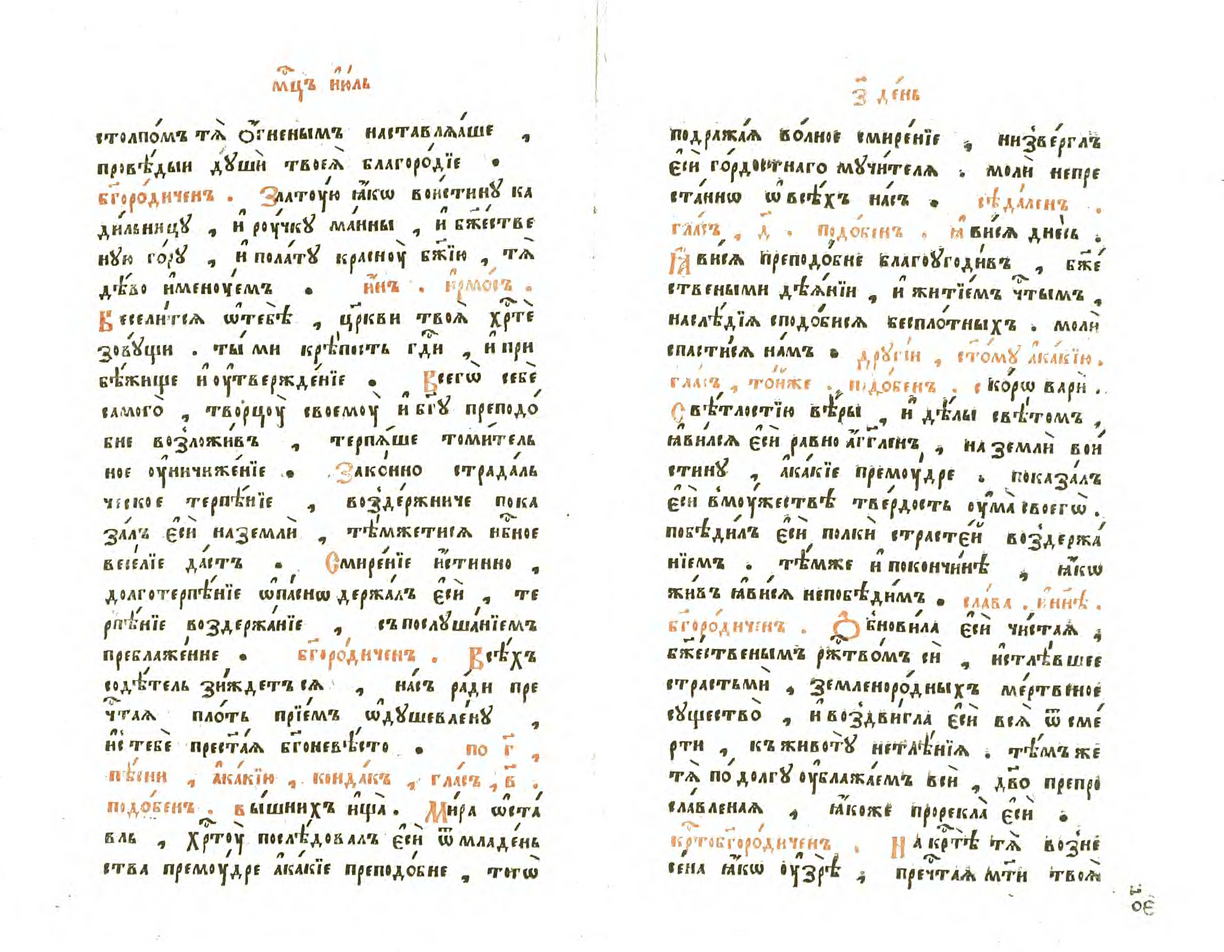 мц҃ъ ию́ль
столпо́мъ тѧ̀ о҆́гненымъ наставлѧ́ѧше ,
провѣ́дыи дꙋшѝ твоеѧ̀ благоро́дїе .
бг҃оро́диченъ . Златоу́ю ꙗ҆́кѡ вои́стинꙋ ка
ди́льницꙋ , и҆ рꙋ́чкꙋ ма́нны , и҆ бж҃е́стве
нꙋю го́рꙋ , и҆ пола́тꙋ кра́сноу бж҃їю , тѧ̀
дѣ́во и҆менꙋ́емъ . и҆́нъ . і҆рмо́съ .
Весели́тсѧ ѡ҆тебѣ̀ , цр҃кви твоѧ̀ хрⷭ҇тѐ
зовꙋ́щи . ты́ ми крѣ́пость гд҇и , и҆ при
бѣ́жище и҆ оу҆твержде́нїе . Всего̀ себѐ
самого̀ , творцоу̀ своемоу̀ и҆ бг҃ꙋ преподо́
бне возложи́въ , терпѧ́ше томи́тель
ное оу҆ничиже́нїе . Зако́нно страда́ль
ческое терпѣ́нїе , возде́ржниче пока
за́лъ є҆сѝ наземлѝ , тѣ́мжетисѧ нб҃ное
весе́лїе да́стъ . Смире́нїе и҆́стинно ,
долготерпѣ́нїе ѡ҆па́снѡ держа́лъ є҆сѝ , те
рпѣ́нїе воздержа́нїе , съпослꙋша́нїемъ
преблаже́нне . бг҃оро́диченъ . Всѣ́хъ
содѣ́тель зи́ждетъсѧ , на́съ ра́ди пре
чⷭ҇таѧ пло́ть прїе́мъ ѡ҆дꙋшевле́нꙋ ,
и҆стебѐ преста́ѧ бг҃оневѣ́сто . по г҃ ,
пѣ́сни , а҆ка́кїю , конда́къ , гла́съ , в҃ .
подо́бенъ . вы́шнихъ и҆ща̀ . Ми́ра ѡ҆ста́
вль , Хрⷭ҇тоу̀ послѣ́довалъ є҆сѝ ѿмладе́нь
ства премоу́дре а҆ка́кїе преподо́бне , того̀
з҃ де́нь
подража́ѧ во́лное смире́нїе , низве́рглъ
є҆сѝ го́рдостнаго мꙋчи́телѧ . молѝ непре
ста́ннѡ ѡ҆всѣ́хъ на́съ . сѣда́ленъ .
гла́съ , д҃ . подо́бенъ . ꙗ҆ви́сѧ дне́сь .
Ꙗ҆ви́сѧ преподо́бне благоꙋгоди́въ , бж҃е́
ствеными дѣѧ́нїи , и҆ житїе́мъ чⷭ҇тымъ ,
наслѣ́дїѧ сподо́бисѧ бесплотныхъ . молѝ
спасти́сѧ на́мъ . дрꙋгі́и , ст҃омꙋ а҆ка́кїю .
гла́съ , то́йже . подо́бенъ . ско́рѡ варѝ .
Свѣ́тлостїю вѣ́ры , и҆ дѣ́лы свѣ́томъ ,
ꙗ҆ви́лсѧ є҆сѝ равно а҆́гг҃лемъ , на землѝ вои́
стинꙋ , а҆ка́кїе премоу́дре . показа́лъ
є҆сѝ вмоу́жествѣ тве́рдость оу҆ма̀ своегѡ̀ .
побѣди́лъ є҆сѝ полкѝ страсте́й воздержа́
нїемъ . тѣ́мже и҆ покончи́нѣ , ꙗ҆́кѡ
жи́въ ꙗ҆ви́сѧ непобѣди́мъ . сла́ва . и҆ны́нѣ .
бг҃оро́диченъ . Ѻ҆бнови́ла є҆сѝ чи́стаѧ ,
бж҃е́ственымъ рж҃тво́мъ сѝ , и҆стлѣ́вшее
страстьмѝ , земленоро́дныхъ ме́ртвеное
сꙋщество̀ , и҆ воздви́гла є҆сѝ всѧ̀ ѿ сме́
рти , къживотꙋ̀ нетлѣ́нїѧ . тѣ́мъже
тѧ̀ по до́лгꙋ оу҆блажа́емъ всѝ , дв҃о препро
сла́вленаѧ , ꙗ҆́коже прорекла̀ є҆сѝ .
крⷭ҇тобг҃оро́диченъ . Накрⷭ҇тѣ̀ тѧ̀ возне
се́на ꙗ҆́кѡ оу҆зрѣ̀ , пречⷭ҇таѧ мт҃и твоѧ̀